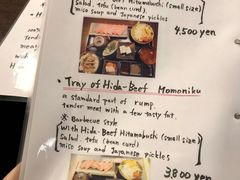 Hida-Beef Hitumabushi (small size)
Salad, tofu (bean curd)
miso soup and Japanese pickles
4,500 yen
• Tray of Hida-Beef Momoniku
a standard part of rump.
tender meat with a few tasty fat.
※ Barbecue style
with Hida-Beef Hitamabushi (small size)
Salad, tofu (bean curd)
miso soup and Japanese pickles
3,800 yen